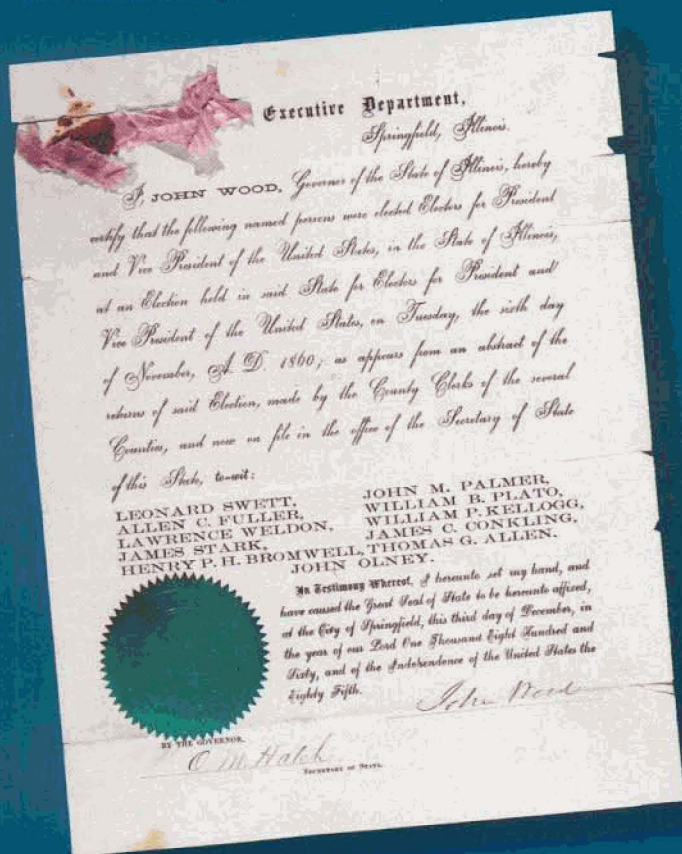 Executive Department,
Springfield, Illinois.
I, JOHN WOOD, Governor of the State of Illinois, hereby
certify that the following named persons were elected Electors for President
and Vice President of the United States, in the State of Illinois,
at an Election held in said State for Electors for President and
Vice President of the United States, on Tuesday, the sixth day
of November, A. D. 1860; as appears from an abstract of the
returns of said Election, made by the County Clerks of the several
Counties, and now on file in the office of the Secretary of State
of this State, to-wit:
LEONARD SWETT, JOHN M. PALMER,
ALLEN C. FULLER, WILLIAM B. PLATO,
LAWRENCE WELDON, WILLIAM P. KELLOGG,
JAMES STARK, JAMES C. CONKLING,
HENRY P. H. BROMWELL, THOMAS G. ALLEN.
JOHN OLNEY.
In Testimony Whereof, I hereunto set my hand, and
have caused the Great Seal of State to be hereunto affixed,
at the City of Springfield, this third day of December, in
the year of our Lord One Thousand Eight Hundred and
Sixty, and of the Independence of the United States the
Eighty Fifth.
John Wood
BY THE GOVERNOR.
O. M. Hatch
SECRETARY OF STATE.